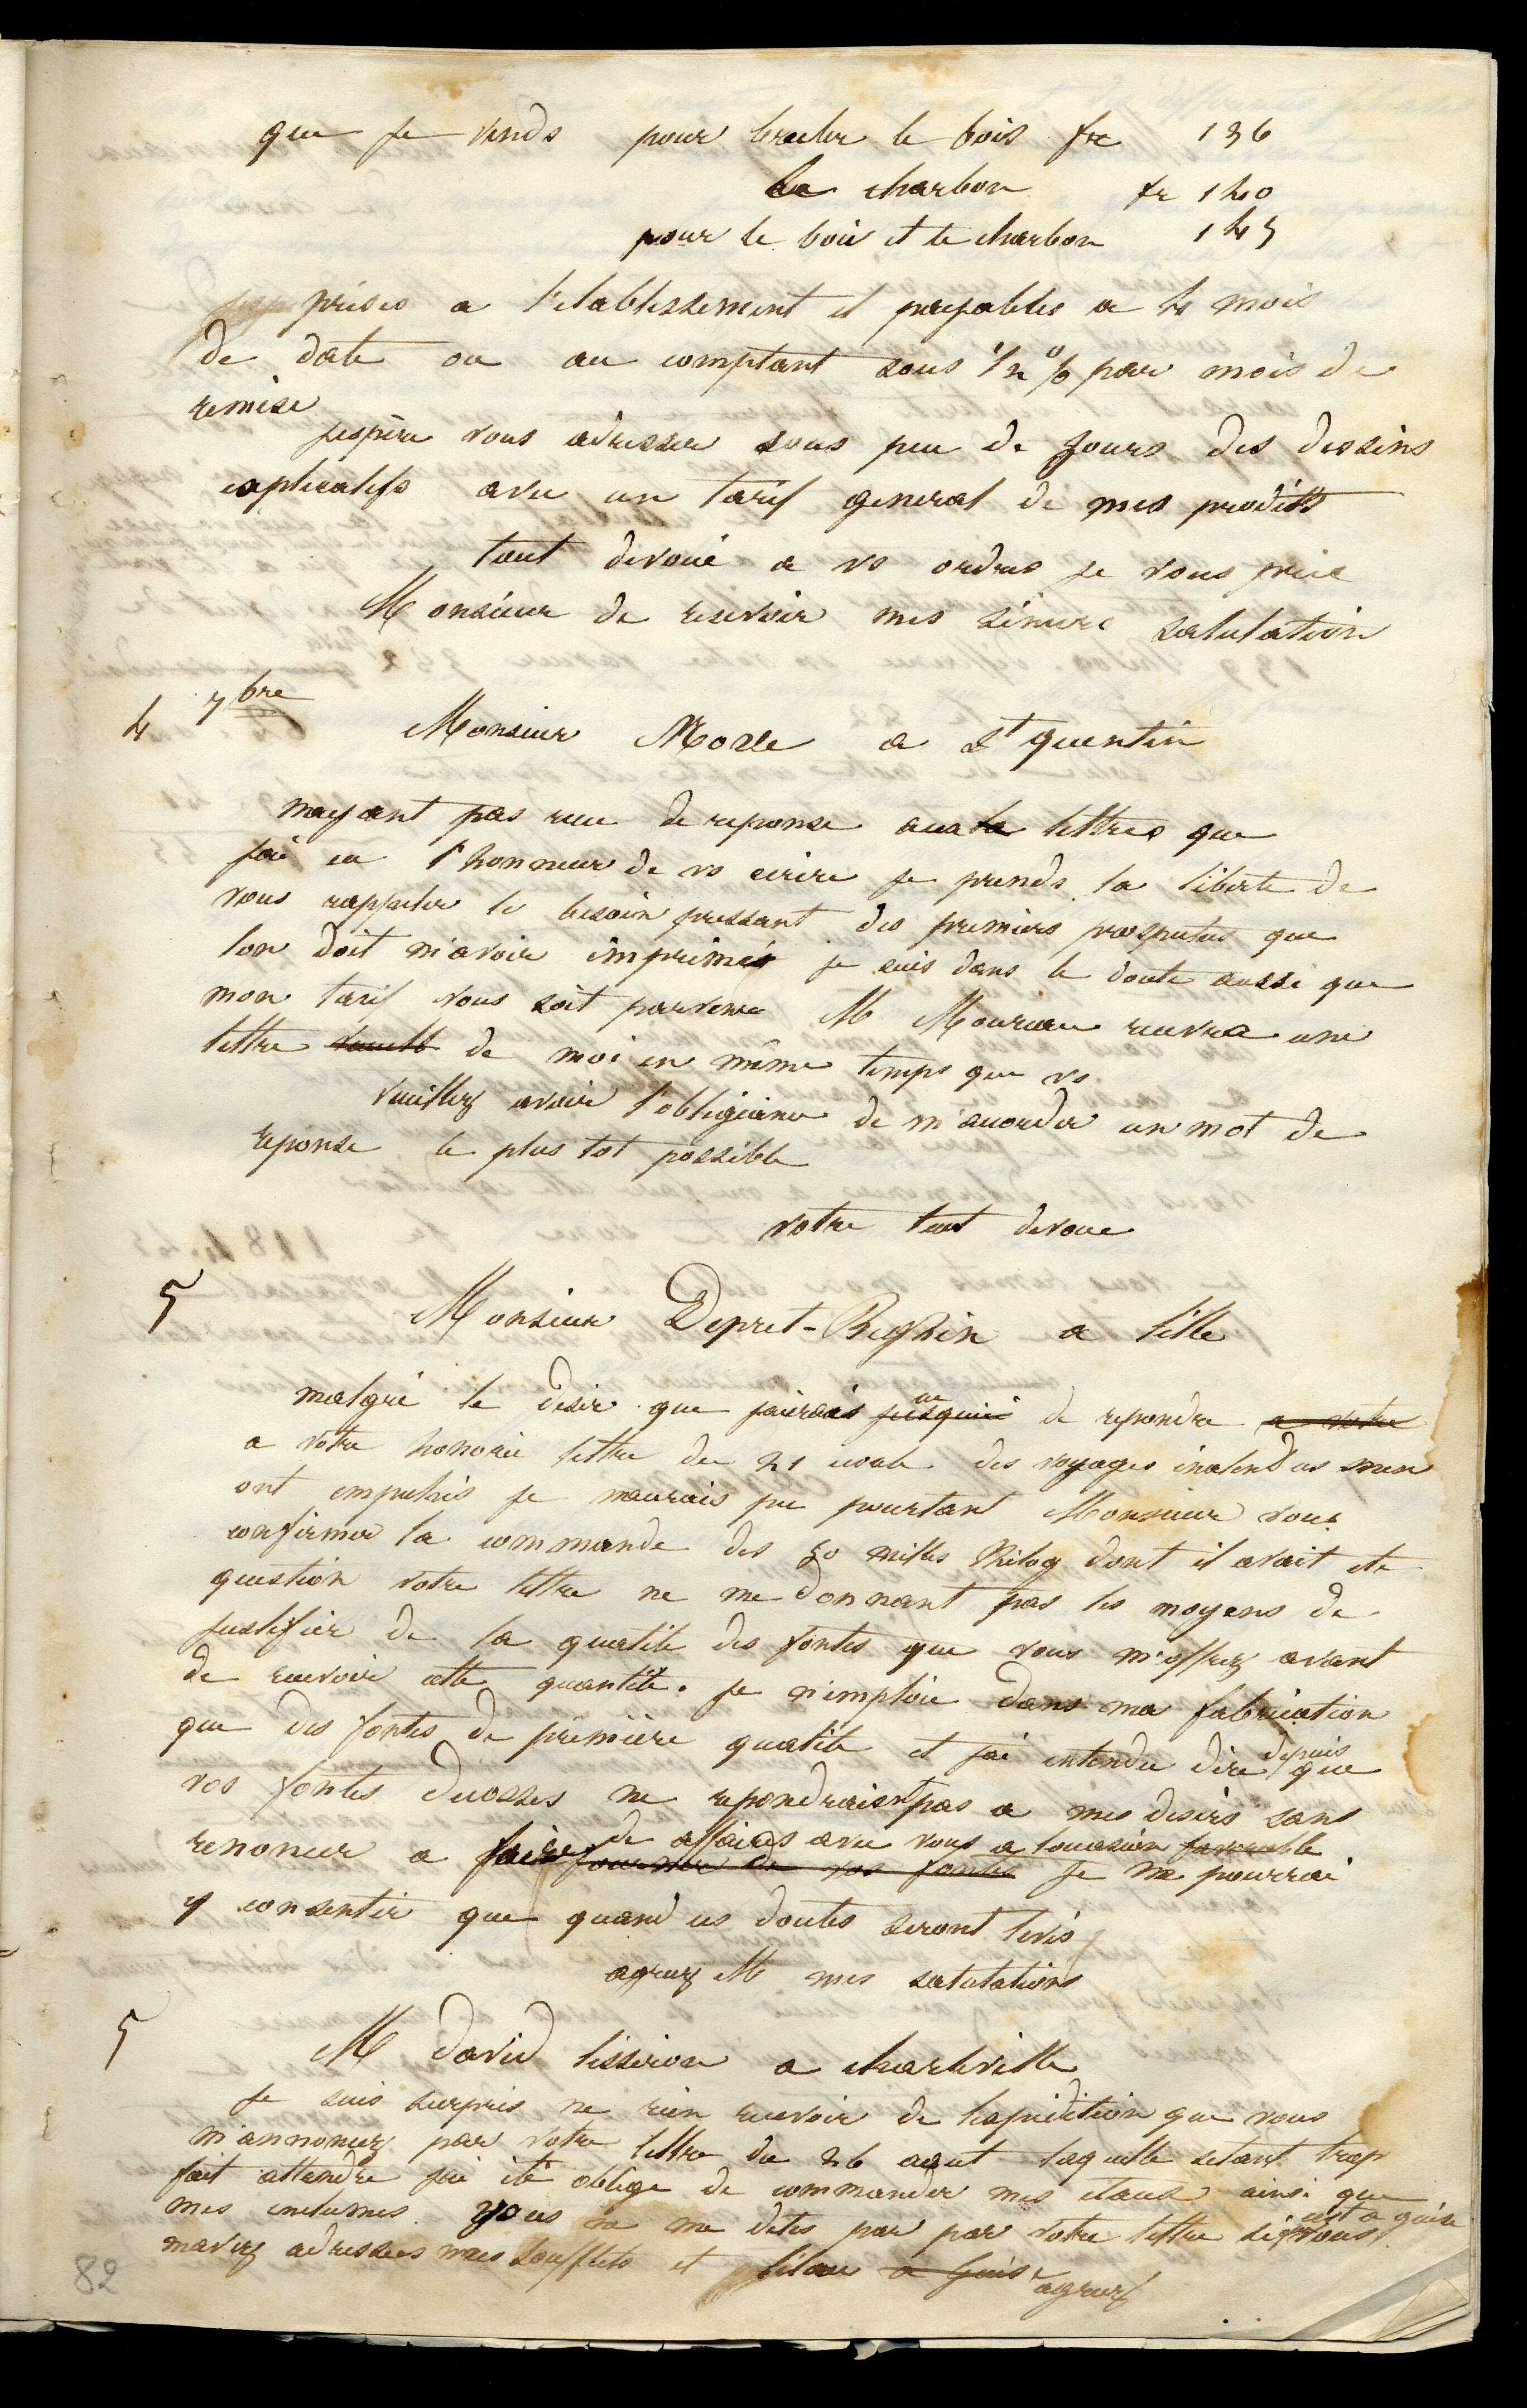 que je vends pour bruler le bois fr 136
le charbon fr 140
pour le bois et le charbon 145
prises a l'etablissement et payables a 4 mois
de date ou au comptant sous 1/2 % par mois de
remise
jespère vous adresser sous peu de jours des dessins
explicatifs avec un tarif general de mes produits
tout devoué a vs ordres je vous prie
Monsieur de recevoir mes sincere salutation
4 7bre
Monsieur a St quentin
nayant pas recu de reponse aux lettres que
jai eu l'honneur de vs ecrire je prends la liberte de
vous rappeler le besoin pressant des premiers prospectus que
lon doit m'avoir imprimés je suis dans le doute aussi que
mon tarif vous soit parvenu M Moureau recevra une
lettre de moi en même temps que vs
veuillez avoir l'obligeance de m'accorder un mot de
reponse le plus tot possible
votre tout devoue
5
Monsieur Depret-Beghin a lille
malgré le desir que jaurais eu de repondre a votre
a votre honorée lettre du 21 des voyages inatendus men
ont empechés je naurais pu pourtant Monsieur vous
confirmer la commande des 50 milles kilog dont il avait ete
question votre lettre ne me donnant pas les moyens de
justifier de la qualité des fontes que vous m'offrez avant
de recevoir cette quantité. je n'emploie dans ma fabrication
que des fontes de première qualité et jai entendu dire depuis que
vos fontes decosses ne repondraient pas a mes desirs sans
renoncer a faire de affaires avec vous a loccasion favorable
fournir de vos fontes je ne pourrai
y consentir que quand ces doutes seront levés
agreez M mes salutations
5
M david tisseron a charleville
je suis surpris ne rien recevoir de lexpedition que vous
m'annoncez par votre lettre du 26 aout laquelle setant trop
fait attendre jai été obligé de commander mes etaux ainsi que
mes enclumes. vous ne me dites par par votre lettre si vous
cest a guise
mavez adressées mes soufflets et a guise agreez
82